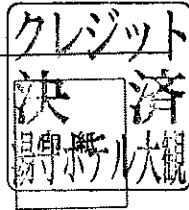 クレジット
決済
湯守ホテル大観